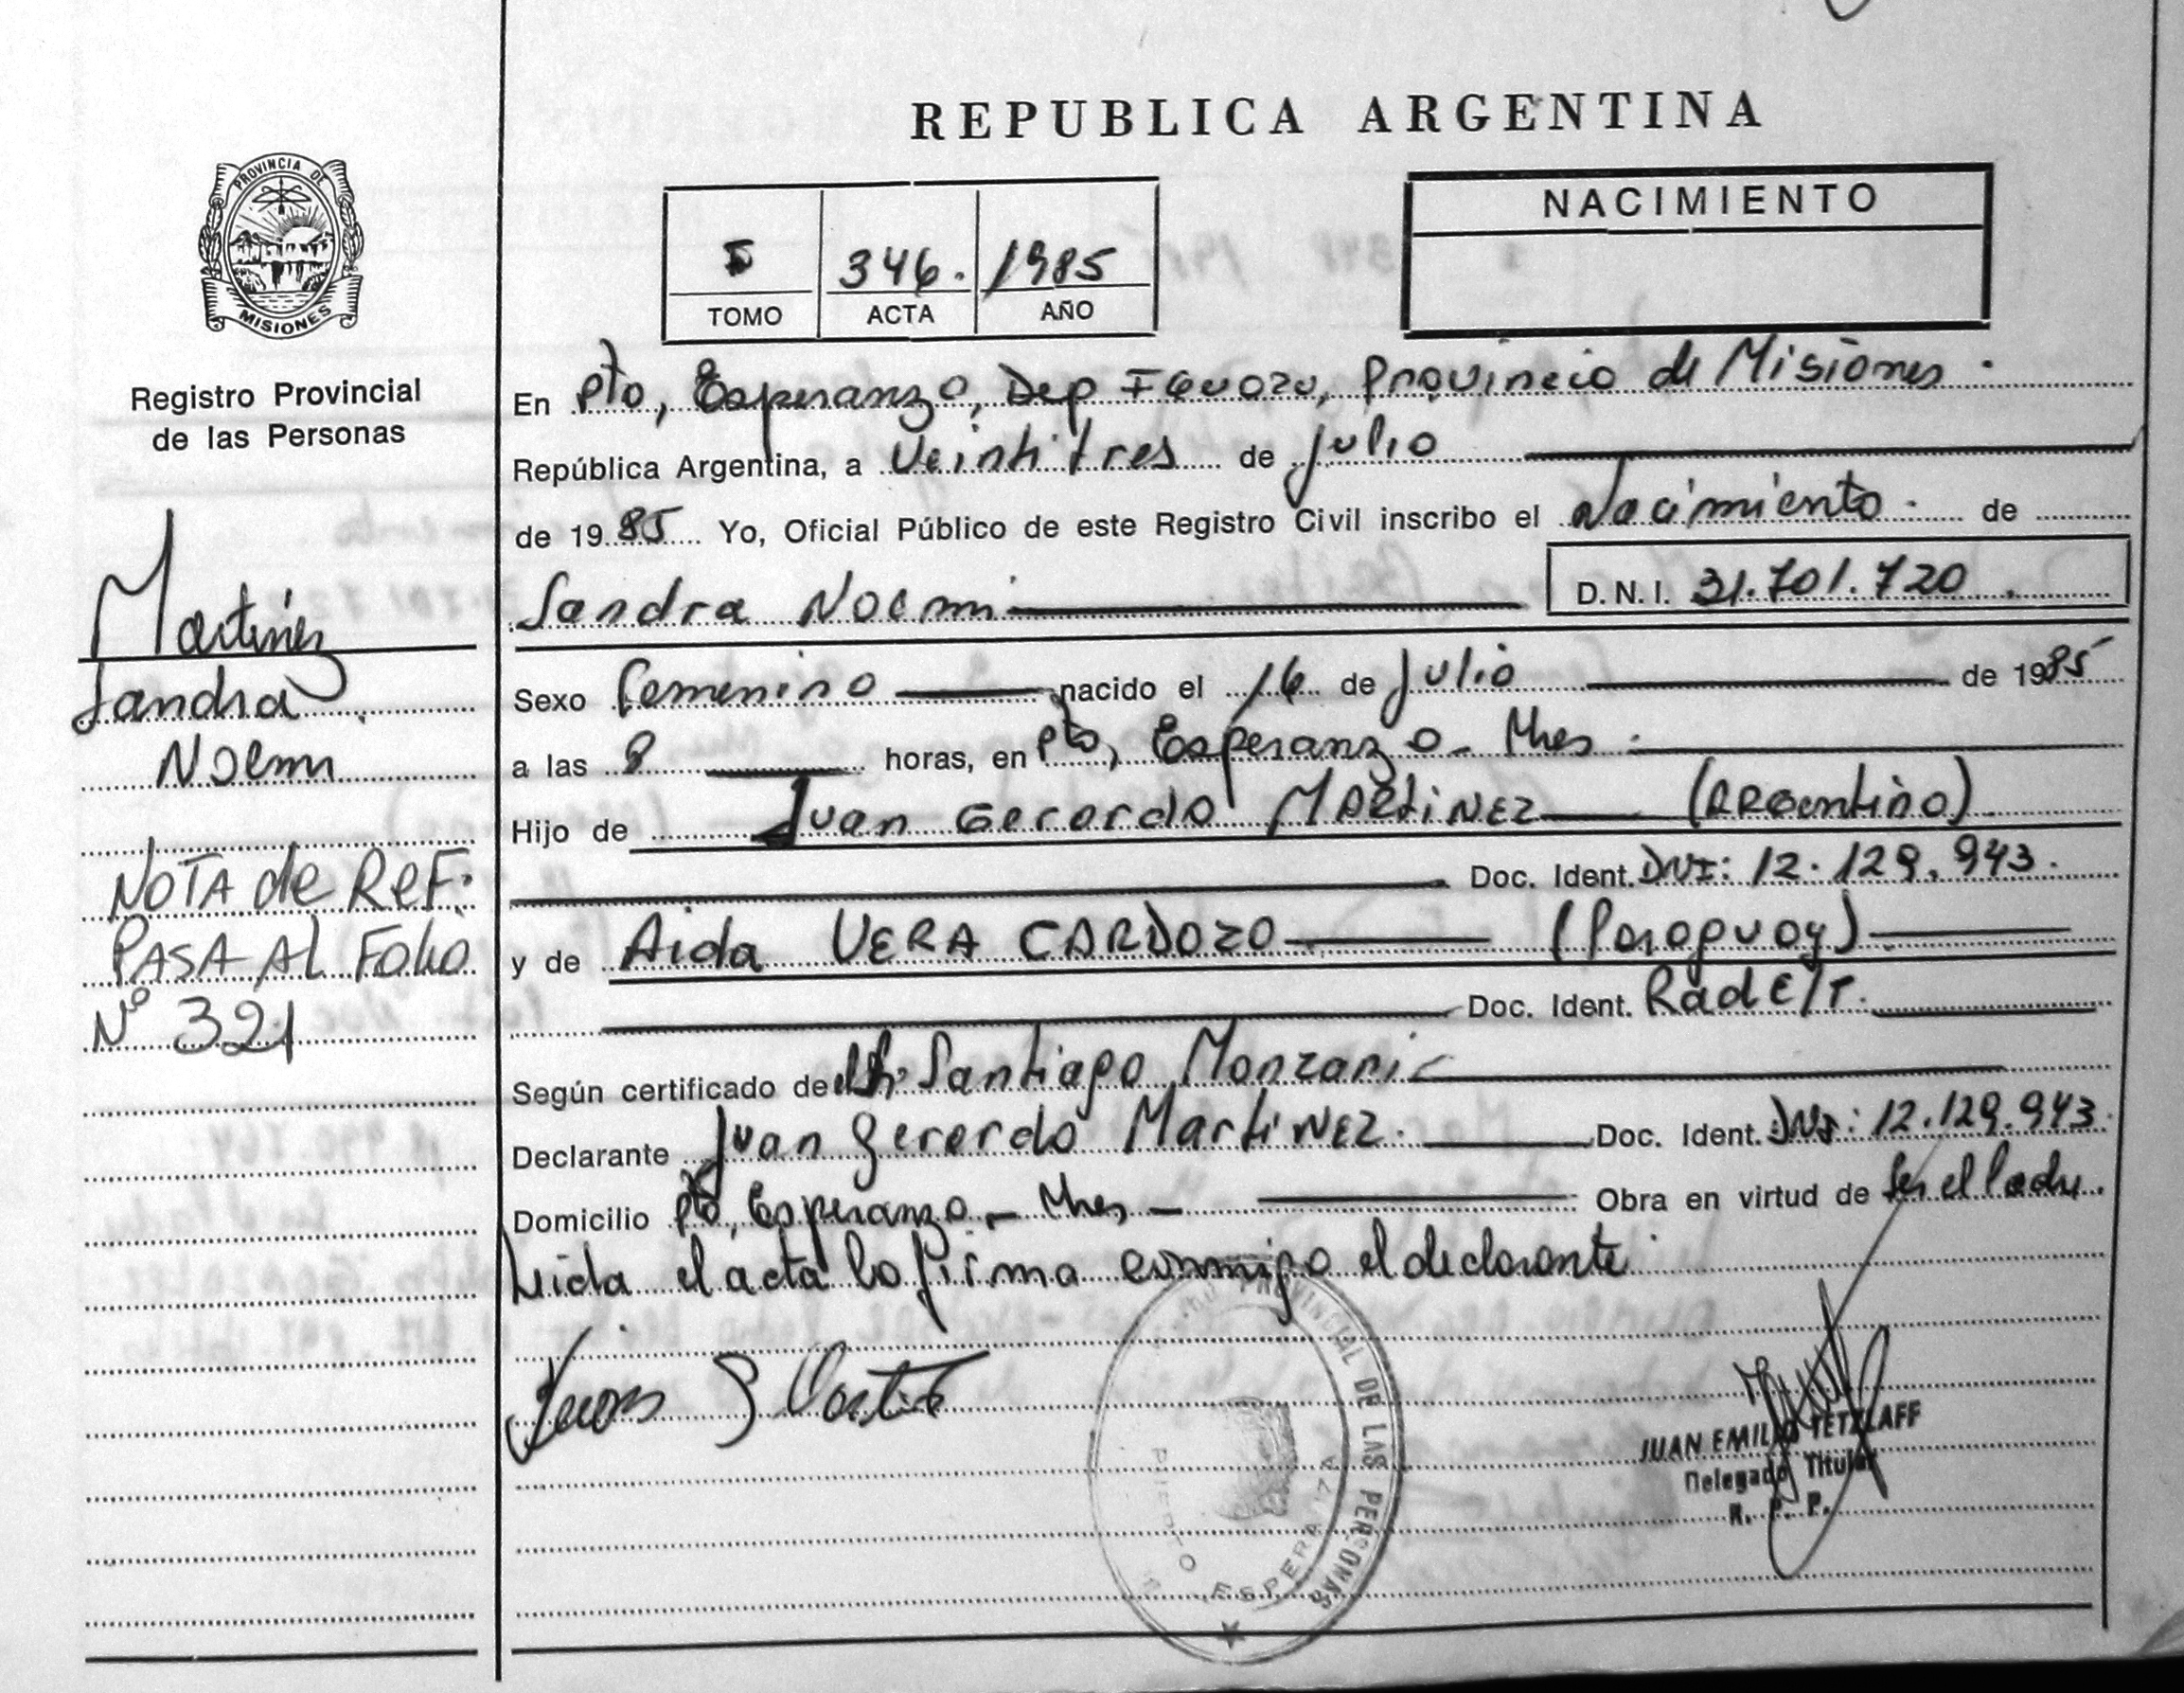 REPUBLICA ARGENTINA
PROVINCIA DE
MISIONES
Registro Provincial
de las Personas
346. 1985
TOMO ACTA AÑO
NACIMIENTO
En Pto, Esperanza, Dep Iguazu, Provincia de Misiones.
República Argentina, a Veintitres de julio
de 1985 Yo, Oficial Público de este Registro Civil inscribo el Nacimiento. de
Sandra Noemi D.N.I. 31.701.720.
Martinez
Sandra
Noemi
NOTA de REF:
PASA AL Folio
Nº 321
Sexo femenino nacido el 16 de Julio de 1985
a las 8 horas, en Pto, Esperanza - Mnes.
Hijo de Juan Gerardo MARTINEZ (ARGentino)
Doc. Ident. DNI: 12.129.943.
y de Aida VERA CARDOZO (Paraguay)
Doc. Ident. Rad E/T.
Según certificado de Santiago
Declarante Juan Gerardo MartiNEZ. Doc. Ident. DNI: 12.129.943.
Domicilio Pto, Esperanza - Mnes - Obra en virtud de Ser el Padre.
Leida el acta la firma conmigo el declarante.
PROVINCIAL DE LAS PERSONAS
ESPERANZA
JUAN EMILIO TETZLAFF
Delegado Titular
R. P. P.